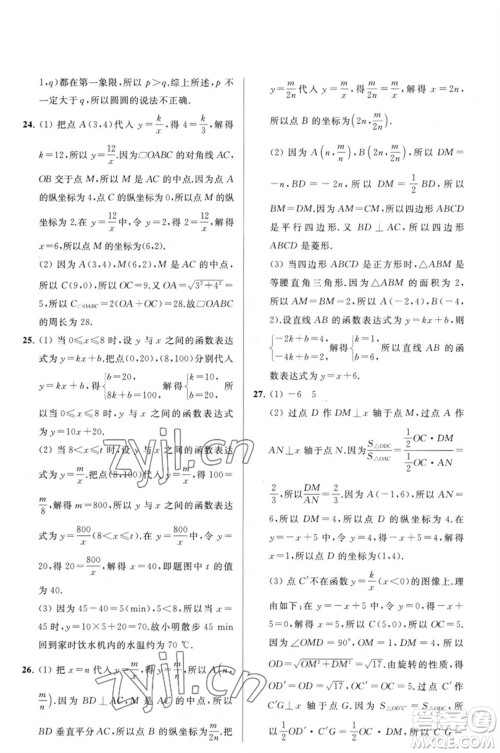 1,q)都在第一象限,所以 p>q. 综上所述,p 不
一定大于 q,所以圆圆的说法不正确.
24. (1) 把点 A(3,4)代入 y=k/x,得 4=k/3,解得
k=12,所以 y=12/x. 因为▱OABC 的对角线 AC,
OB 交于点 M,所以 M 是 AC 的中点. 因为点 A
的纵坐标为 4,点 C 的纵坐标为 0,所以点 M 的纵
坐标为 2. 在 y=12/x 中,令 y=2,得 x=6,所以点 M
的坐标为(6,2).
(2) 因为 A(3,4),M(6,2),M 是 AC 的中点,
所以 C(9,0),所以 OC=9. 因为 OA=√3²+4²=
5,所以 C▱OABC=2(OA+OC)=28. 故▱OABC
的周长为 28.
25. (1) 当 0≤x≤8 时,设 y 与 x 之间的函数表达
式为 y=kx+b. 把点(0,20),(8,100)分别代入
y=kx+b,得{b=20, 8k+b=100,解得{k=10, b=20,
所以当 0≤x≤8 时,y 与 x 之间的函数表达式
为 y=10x+20.
(2) 当 8<x≤a 时,设 y 与 x 之间的函数表达
式为 y=m/x. 把点(8,100)代入 y=m/x,得 100=
m/8,解得 m=800,所以 y 与 x 之间的函数表达式
为 y=800/x (8<x≤a). 在 y=800/x 中,令 y=20,得
20=800/x,解得 x=40,即题图中 a 的值
为 40.
(3) 因为 45-40=5(min),所以当 x=5 时,
y=10×5+20=70,所以小明散步 45 min 回到
家时饮水机内的水温约为 70 ℃.
26. (1) 把 x=n 代入 y=m/x,得 y=m/n,所以 A(n,
m/n). 因为 BD⊥AC,AC⊥x 轴于点 C,所以
BD 垂直平分 AC,所以 yB=1/2 yA=m/2n. 把
y=m/2n 代入 y=m/x,得 m/2n=m/x,解得 x=2n,
所以点 B 的坐标为(2n,m/2n).
(2) 因为 A(n,m/n),B(2n,m/2n),所以 DM=
-n,BD=-2n,所以 DM=1/2 BD,所以
BM=DM. 因为 AM=CM,所以四边形 ABCD
是平行四边形. 又 BD⊥AC,所以四边形
ABCD 是菱形.
(3) 当四边形 ABCD 是正方形时,△ABM 是
等腰直角三角形. 因为△ABM 的面积为 2,所
以 AM=BM=2,所以 A(-2,4),B(-4,2).
设直线 AB 的函数表达式为 y=kx+b,则
{-2k+b=4, -4k+b=2,解得{k=1, b=6,所以直线 AB 的
函数表达式为 y=x+6.
27. (1) -6 5
(2) 过点 D 作 DM⊥x 轴于点 M,过点 A 作
AN⊥x 轴于点 N. 因为 S△ODC/S△OAC=(1/2 OC·DM)/(1/2 OC·AN)=
2/3,所以 DM/AN=2/3. 因为 A(-1,6),所以 AN=
6,所以 DM=4,所以点 D 的纵坐标为 4. 在
y=-x+5 中,令 y=4,得 4=-x+5,解得 x=
1,所以 D(1,4).
(3) 点 C′在函数 y=k/x (x<0)的图像上. 理
由如下:在 y=-x+5 中,令 y=0,得 0=
-x+5,解得 x=5,所以 C(5,0),所以 OC=5.
因为∠OMD=90°,OM=1,DM=4,所以
OD=√OM²+DM²=√17. 由旋转的性质,得
OC′=OC=5,OD′=OD=√17. 过点 C′作
C′G⊥x 轴于点 G. 因为 S△ODC=S△OD′C′,所
以 1/2 OC·DM=1/2 OD′·C′G,所以 C′G=
zyjl.cn
zyjl.cn
答案圈
MXQE.COM